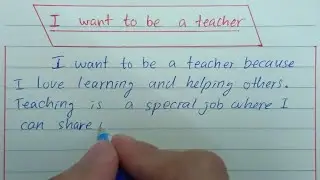 I want to be a teacher
I want to be a teacher because
I love learning and helping others.
Teaching is a special job where I
can share